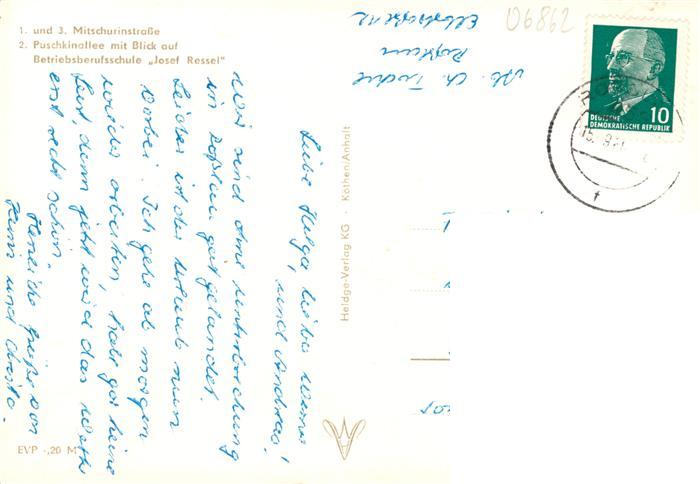 1. und 3. Mitschurinstraße
2. Puschkinallee mit Blick auf
Betriebsberufsschule „Josef Ressel"
Abs. Ch.
Roßlau
Elbstraße 12
06862
10
DEUTSCHE
DEMOKRATISCHE REPUBLIK
RO
15.
Liebe Helga, lieber Werner
und Andreas!
Wir sind ohne Unterbrechung
in Roßlau gut gelandet.
Leider ist der Urlaub nun
vorbei. Ich gehe ab morgen
wieder arbeiten, habe gar keine
Lust, denn jetzt wird das Wetter
erst recht schön.
Herzliche Grüße von
und Christa.
Heldge-Verlag KG · Köthen/Anhalt
EVP -,20 M